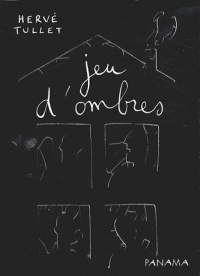 HERVÉ
TULLET
jeu
d'ombres
PANAMA